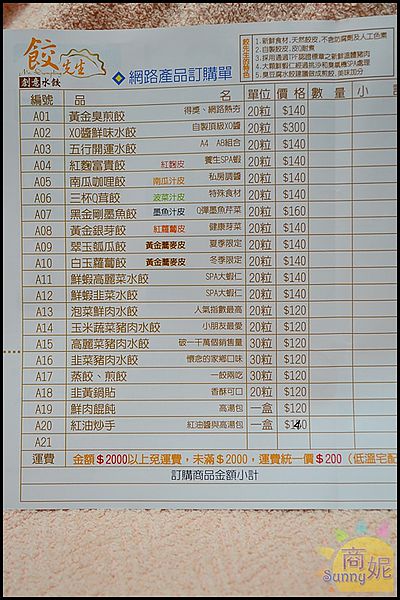 餃先生
創意水餃
網路產品訂購單
餃先生的特色
1.新鮮食材,天然餃皮,不含防腐劑及人工色素
2.自製餃皮,皮Q耐煮
3.採用通過TFF認證標章之新鮮溫體豬肉
4.大顆鮮蝦仁經過挑沙和臭氧機SPA處理
5.臭豆腐水餃建議做成煎餃,美味加分
編號 品 名 單位 價格 數量 小
A01 黃金臭煎餃 得獎、網路熱夯 20粒 $140
A02 XO醬鮮味水餃 自製頂級XO醬 20粒 $300
A03 五行開運水餃 A4 AB組合 20粒 $140
A04 紅麴富貴餃 紅麴皮 養生SPA蝦 20粒 $140
A05 南瓜咖哩餃 南瓜汁皮 私房調醬 20粒 $140
A06 三杯Q茸餃 菠菜汁皮 特殊食材 20粒 $140
A07 黑金剛墨魚餃 墨魚汁皮 Q彈墨魚芹菜 20粒 $160
A08 黃金銀芽餃 紅蘿蔔皮 健康芽菜 20粒 $140
A09 翠玉瓠瓜餃 黃金蕎麥皮 夏季限定 20粒 $140
A10 白玉蘿蔔餃 黃金蕎麥皮 冬季限定 20粒 $140
A11 鮮蝦高麗菜水餃 SPA大蝦仁 20粒 $140
A12 鮮蝦韭菜水餃 SPA大蝦仁 20粒 $140
A13 泡菜鮮肉水餃 人氣指數最高 20粒 $120
A14 玉米蔬菜豬肉水餃 小朋友最愛 20粒 $120
A15 高麗菜豬肉水餃 破一千萬個銷售量 30粒 $120
A16 韭菜豬肉水餃 懷念的家鄉口味 30粒 $120
A17 蒸餃、煎餃 一餃兩吃 30粒 $120
A18 韭黃鍋貼 香酥可口 20粒 $120
A19 鮮肉餛飩 高湯包 一盒 $120
A20 紅油炒手 紅油醬與高湯包 一盒 $140
A21
運費 金額$2000以上免運費,未滿$2000,運費統一價$200(低溫宅配
訂購商品金額小計
商妮
Sunny